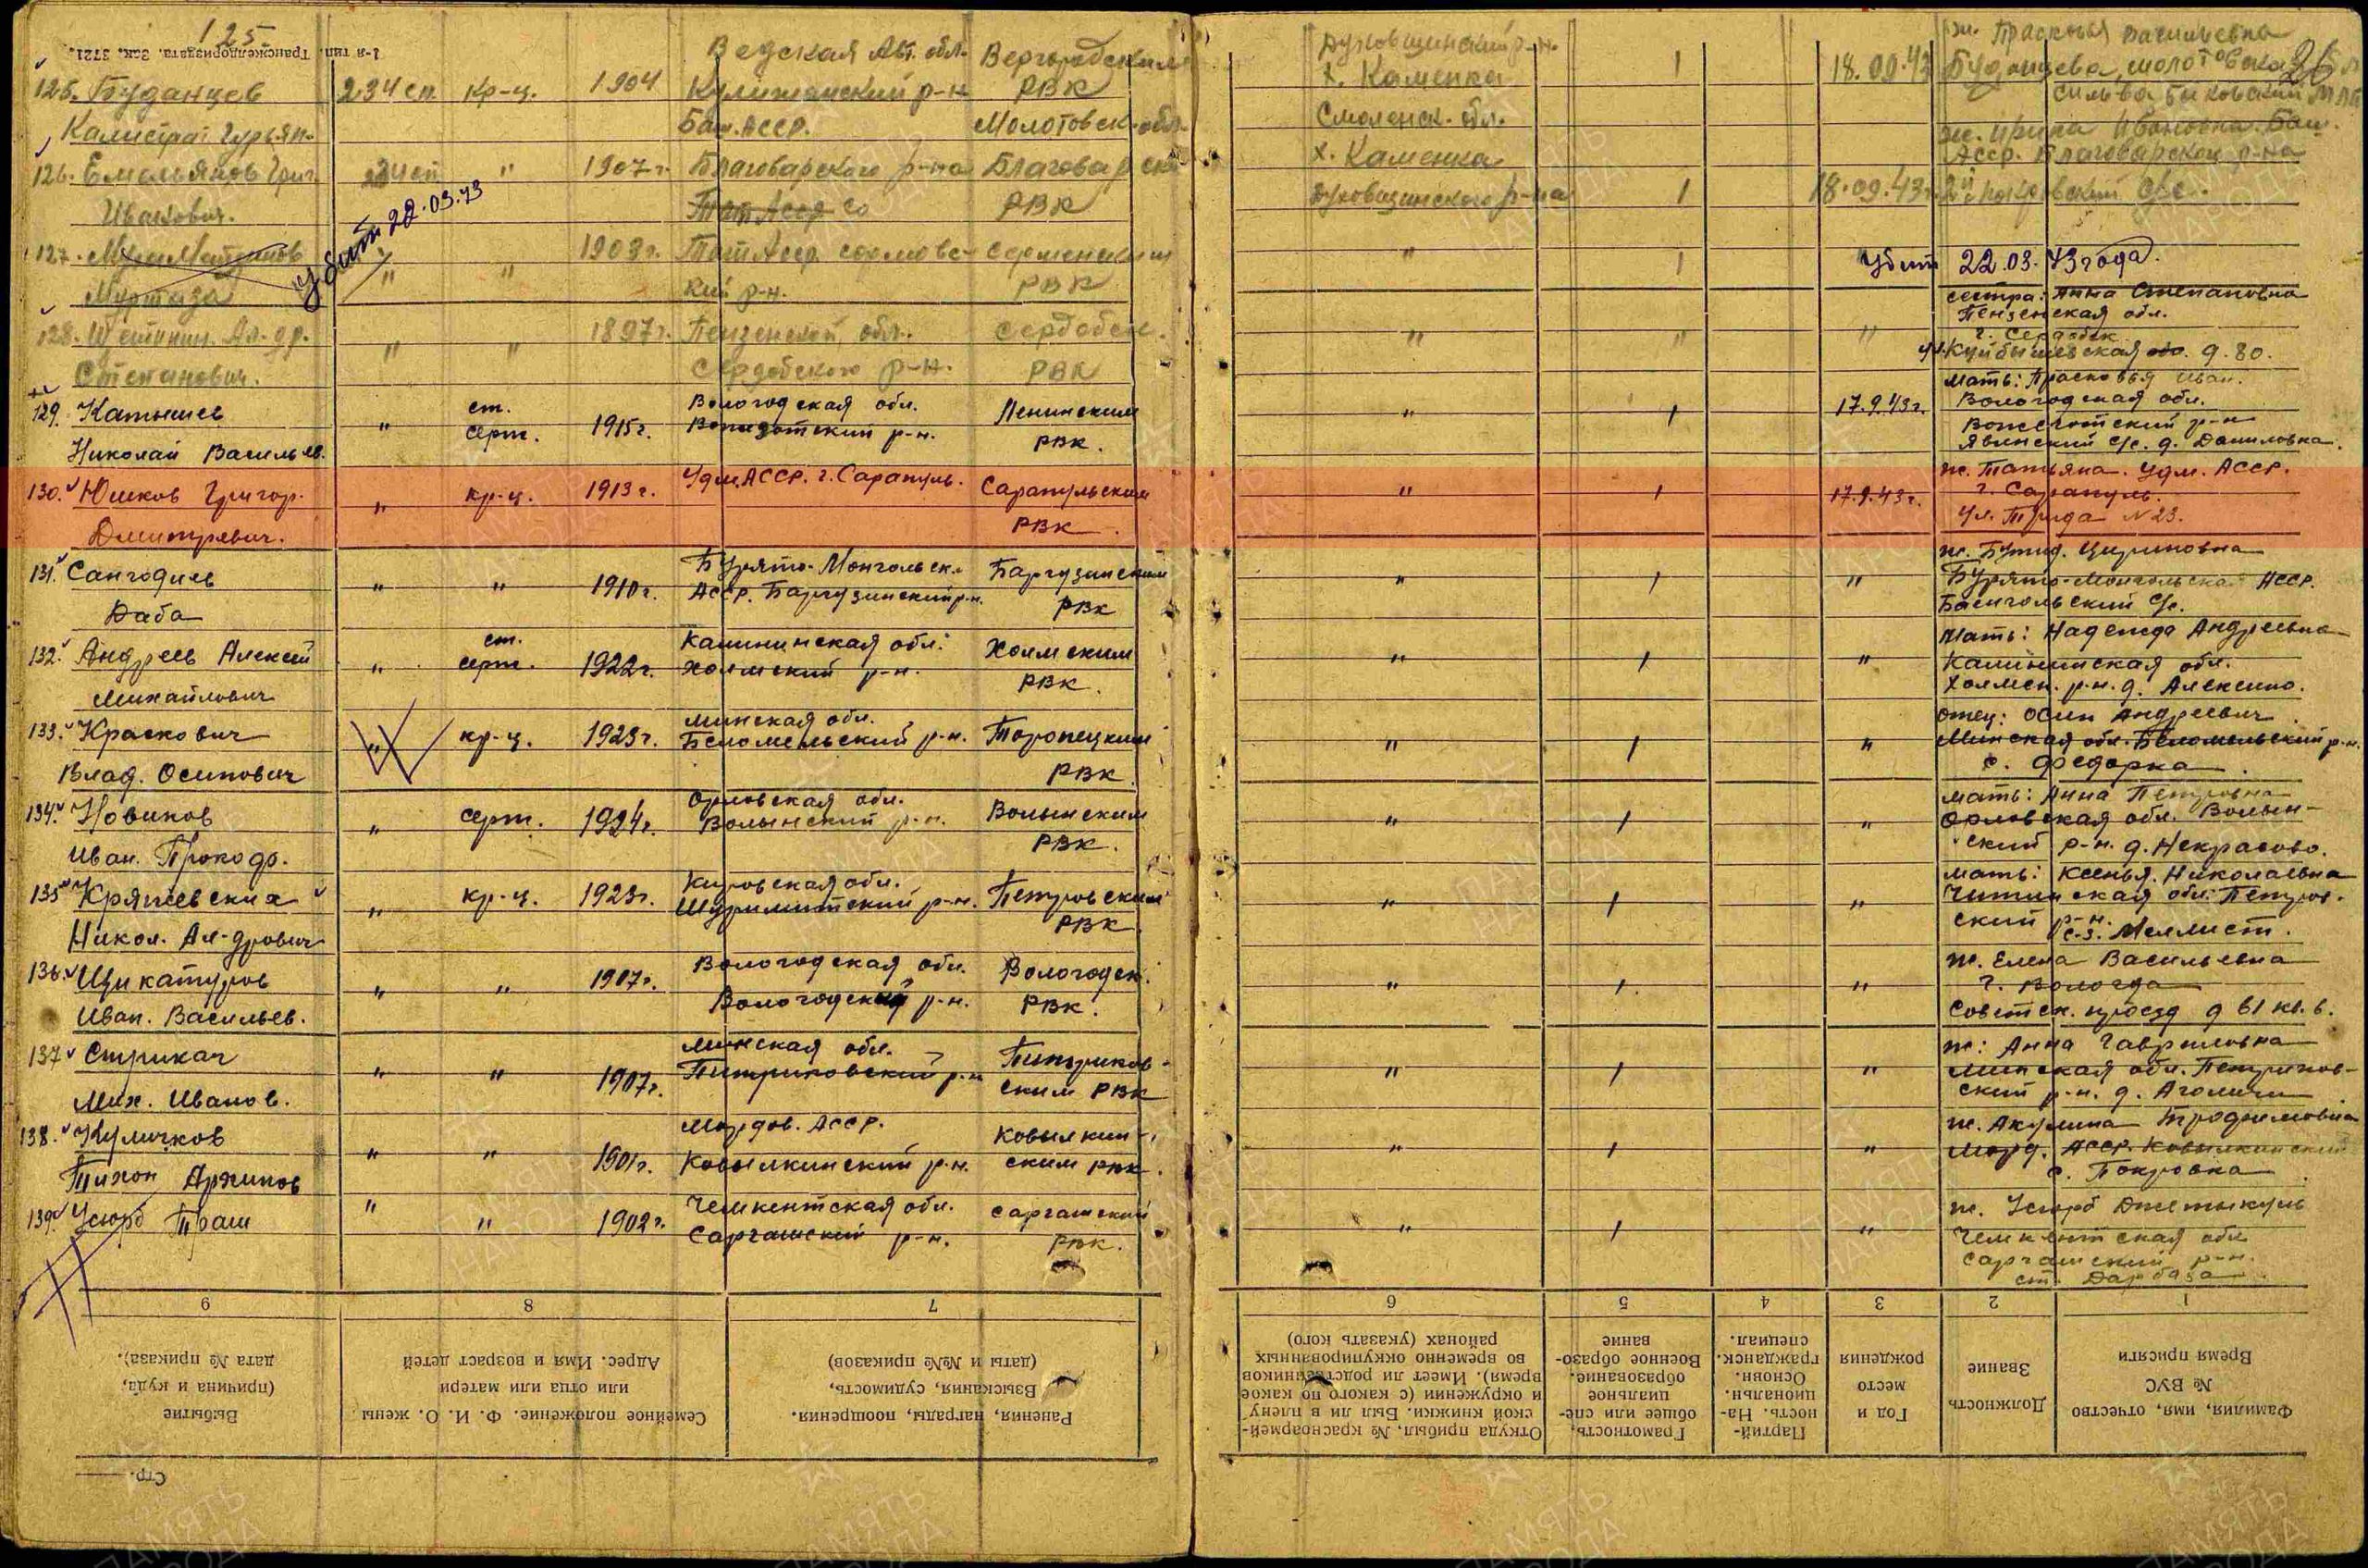 125
1-я тип. Трансжелдориздата. Зак. 3721.
125. Буданцев
234 сп. кр-ц. 1904
Ведская Авт. обл.
Кулижанский р-н
РВК
Молотовск. обл.
Духовщинский р-н.
х. Каменка
Смоленск. обл.
1
18.09.43
ж. Прасковья Васильевна
Буданцева
26
126. Емельянов Григ.
Иванович.
234 сп " 1907 г.
Баш. АССР.
Благоварского р-на
Благоварск
РВК
х. Каменка
Духовщинского р-на
1
18.09.43 г.
ж. Ирина Ивановна. Баш.
Асср. Благоварской р-на
127.
Муртаза
Убит 22.03.43
" " 1903 г.
Тат Асср.
кий р-н.
РВК
" 1
Убит 22.03.43 года.
128. Щетинин. Ал-др.
Степанович.
" " 1897 г.
Пензенской обл.
Сердобского р-н.
Сердобск.
РВК
" " "
сестра: Анна Степановна
Пензенская обл.
г. Сердобск
ул. Куйбышевская д. 80.
129. Катышев
Николай Васильев.
" ст. серж. 1915 г.
Вологодская обл.
Ленинским
РВК.
" 1 17.9.43 г.
Мать: Прасковья Иван.
Вологодская обл.
Вожеготский р-н
Явенский с/с. д. Даниловка.
130. Юшков Григор.
Дмитревич.
" кр-ц. 1913 г.
Удм. АССР. г. Сарапуль.
Сарапульским
РВК
" 1 17.9.43 г.
ж. Татьяна. Удм. АССР.
г. Сарапуль.
Ул. Труда N 23.
131. Сангодиев
Даба
" " 1910 г.
Бурято-Монгольск.
Асср. Баргузинский р-н.
Баргузинским
РВК
" 1 "
Бурято-Монгольская АССР.
132. Андреев Алексей
Михайлович
" ст. серж. 1922 г.
Калининская обл.
Холмский р-н.
Холмским
РВК.
" 1 "
Мать: Надежда Андреевна
Калининская обл.
Холмск. р-н. д. Алексино.
133. Краскович
Влад. Осипович
" кр-ц. 1923 г.
Минская обл.
Беломельский р-н.
Торопецким
РВК.
" 1 "
отец: Осип Андреевич
Минская обл. Беломельский р-н.
с. Федорка
134. Новиков
Иван. Прокоф.
" серж. 1924 г.
Орловская обл.
Волынский р-н.
Волынским
РВК.
" 1 "
мать: Анна Петровна
Орловская обл. Волын-
ский р-н. д. Некрасово.
135. Кряжевских
Никол. Ал-дрович
" кр-ц. 1923 г.
Кировская обл.
Петровским
РВК
" 1 "
мать: Ксенья. Николаевна
Читинская обл. Петров-
ский р-н.
136. Щикатуров
Иван. Васильев.
" " 1907 г.
Вологодская обл.
Вологодский р-н.
Вологодск.
РВК.
" 1. "
ж. Елена Васильевна
г. Вологда
Советск. проезд д 61 кв. 6.
137. Стрикач
Мих. Иванов.
" " 1907 г.
Минская обл.
Питриковский р-н
Питриков-
ским РВК
" 1 "
ж: Анна Гавриловна
Минская обл. Петриков-
ский р-н. д. Аголичи
138. Куличков
Тихон Архипов
" " 1901 г.
Мордов. АССР.
Ковылкинский р-н.
Ковылкин-
ским РВК.
" 1 "
ж. Акулина Трофимовна
Морд. АССР. Ковылкинский
с. Покровка
139. Усюрб Траш
" " 1902 г.
Чемкентская обл.
Саргашский р-н.
Саргашский
РВК.
" 1 "
ж. Усюрб Джетыкуль
Чемкентская обл
Саргашский р-н.
ст. Дарбаза
9 8 7 6 5 4 3 2 1
Выбытие
(причина и куда,
дата № приказа).
Семейное положение. Ф. И. О. жены
или отца или матери
Адрес. Имя и возраст детей
Ранения, награды, поощрения.
Взыскания, судимость,
(даты и №№ приказов)
Откуда прибыл, № красноармей-
ской книжки. Был ли в плену
и окружении (с какого по какое
время). Имеет ли родственников
во временно оккупированных
районах (указать кого)
Грамотность,
общее или спе-
циальное
образование.
Военное образо-
вание
Партий-
ность. На-
циональн.
Основн.
гражданск.
специал.
Год и
место
рождения
Должность
Звание
Фамилия, имя, отчество
№ ВУС
Время присяги
Стр.
ПАМЯТЬ НАРОДА